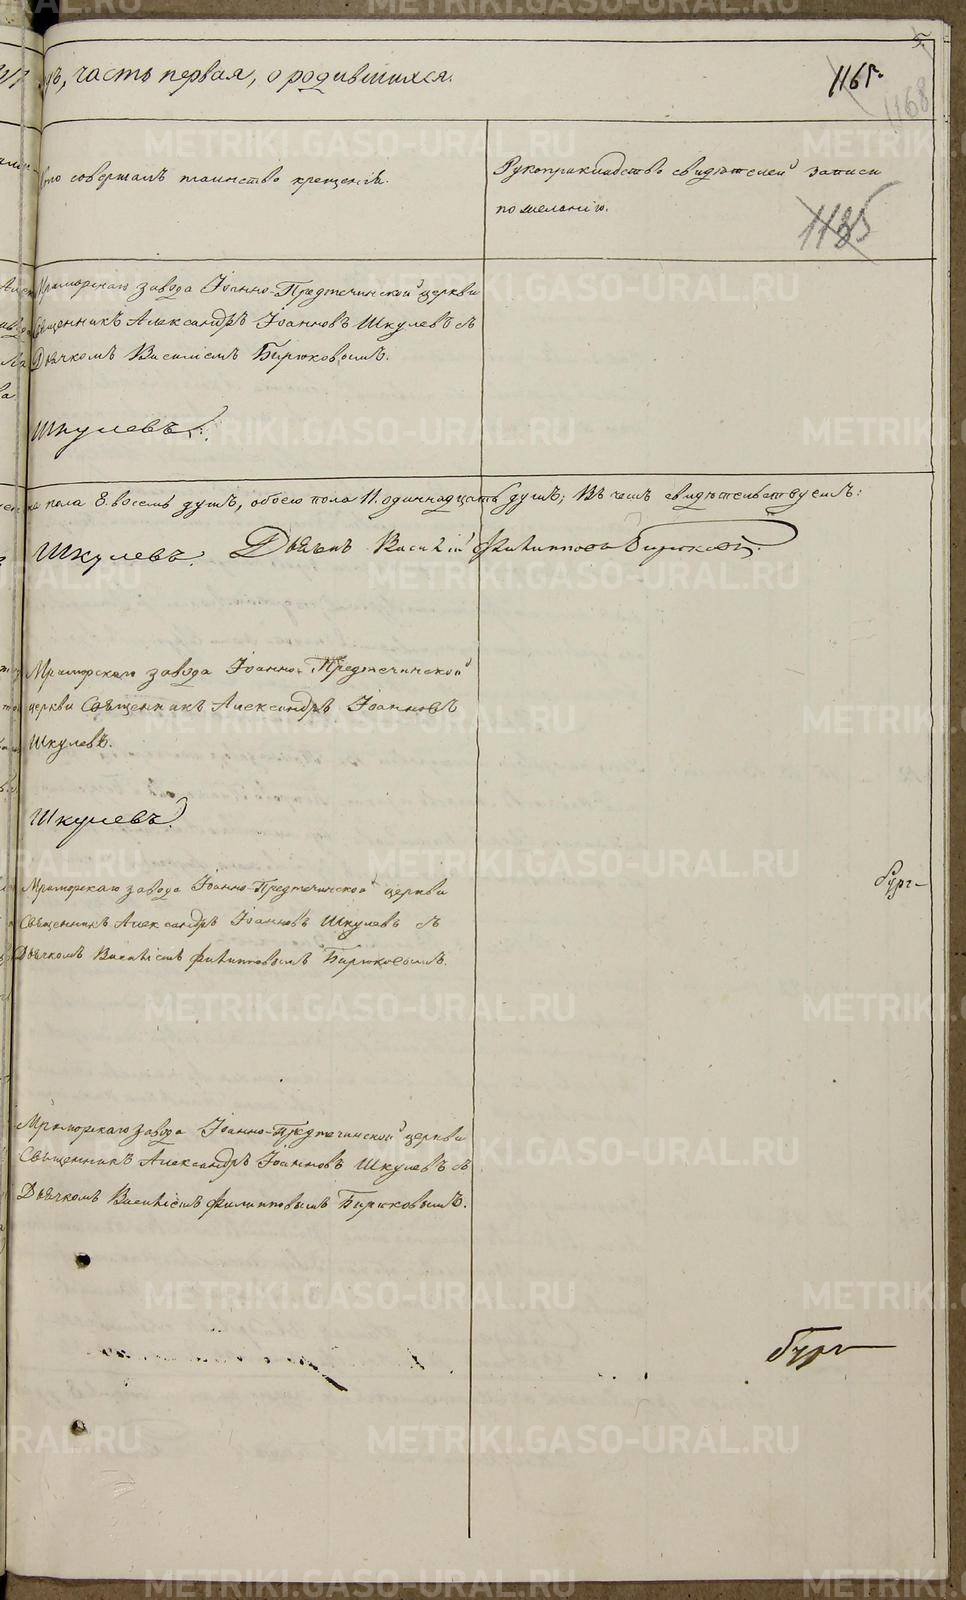 5.
часть первая, о родившихся.
1165.
1168
Кто совершалъ таинство крещенія.
Рукоприкладство свидѣтелей записи
по желанію.
1135
Мраморскаго завода Іоанно-Предтечинской церкви
Священникъ Александръ Іоанновъ Шкулевъ съ
Дьячкомъ Василіемъ Бирюковымъ.
Шкулевъ.
пола 8. восемь душъ, обоего пола 11. одиннадцать душъ; Въ чемъ свидѣтельствуемъ:
Шкулевъ. Дьячекъ Василій Филипповъ Бирюковъ.
Мраморскаго завода Іоанно-Предтечинской
церкви Священникъ Александръ Іоанновъ
Шкулевъ.
Шкулевъ.
Мраморскаго завода Іоанно-Предтечинской церкви
Священникъ Александръ Іоанновъ Шкулевъ съ
Дьячкомъ Василіемъ Филипповымъ Бирюковымъ.
Мраморскаго завода Іоанно-Предтечинской церкви
Священникъ Александръ Іоанновъ Шкулевъ съ
Дьячкомъ Василіемъ Филипповымъ Бирюковымъ.
METRIKI.GASO-URAL.RU